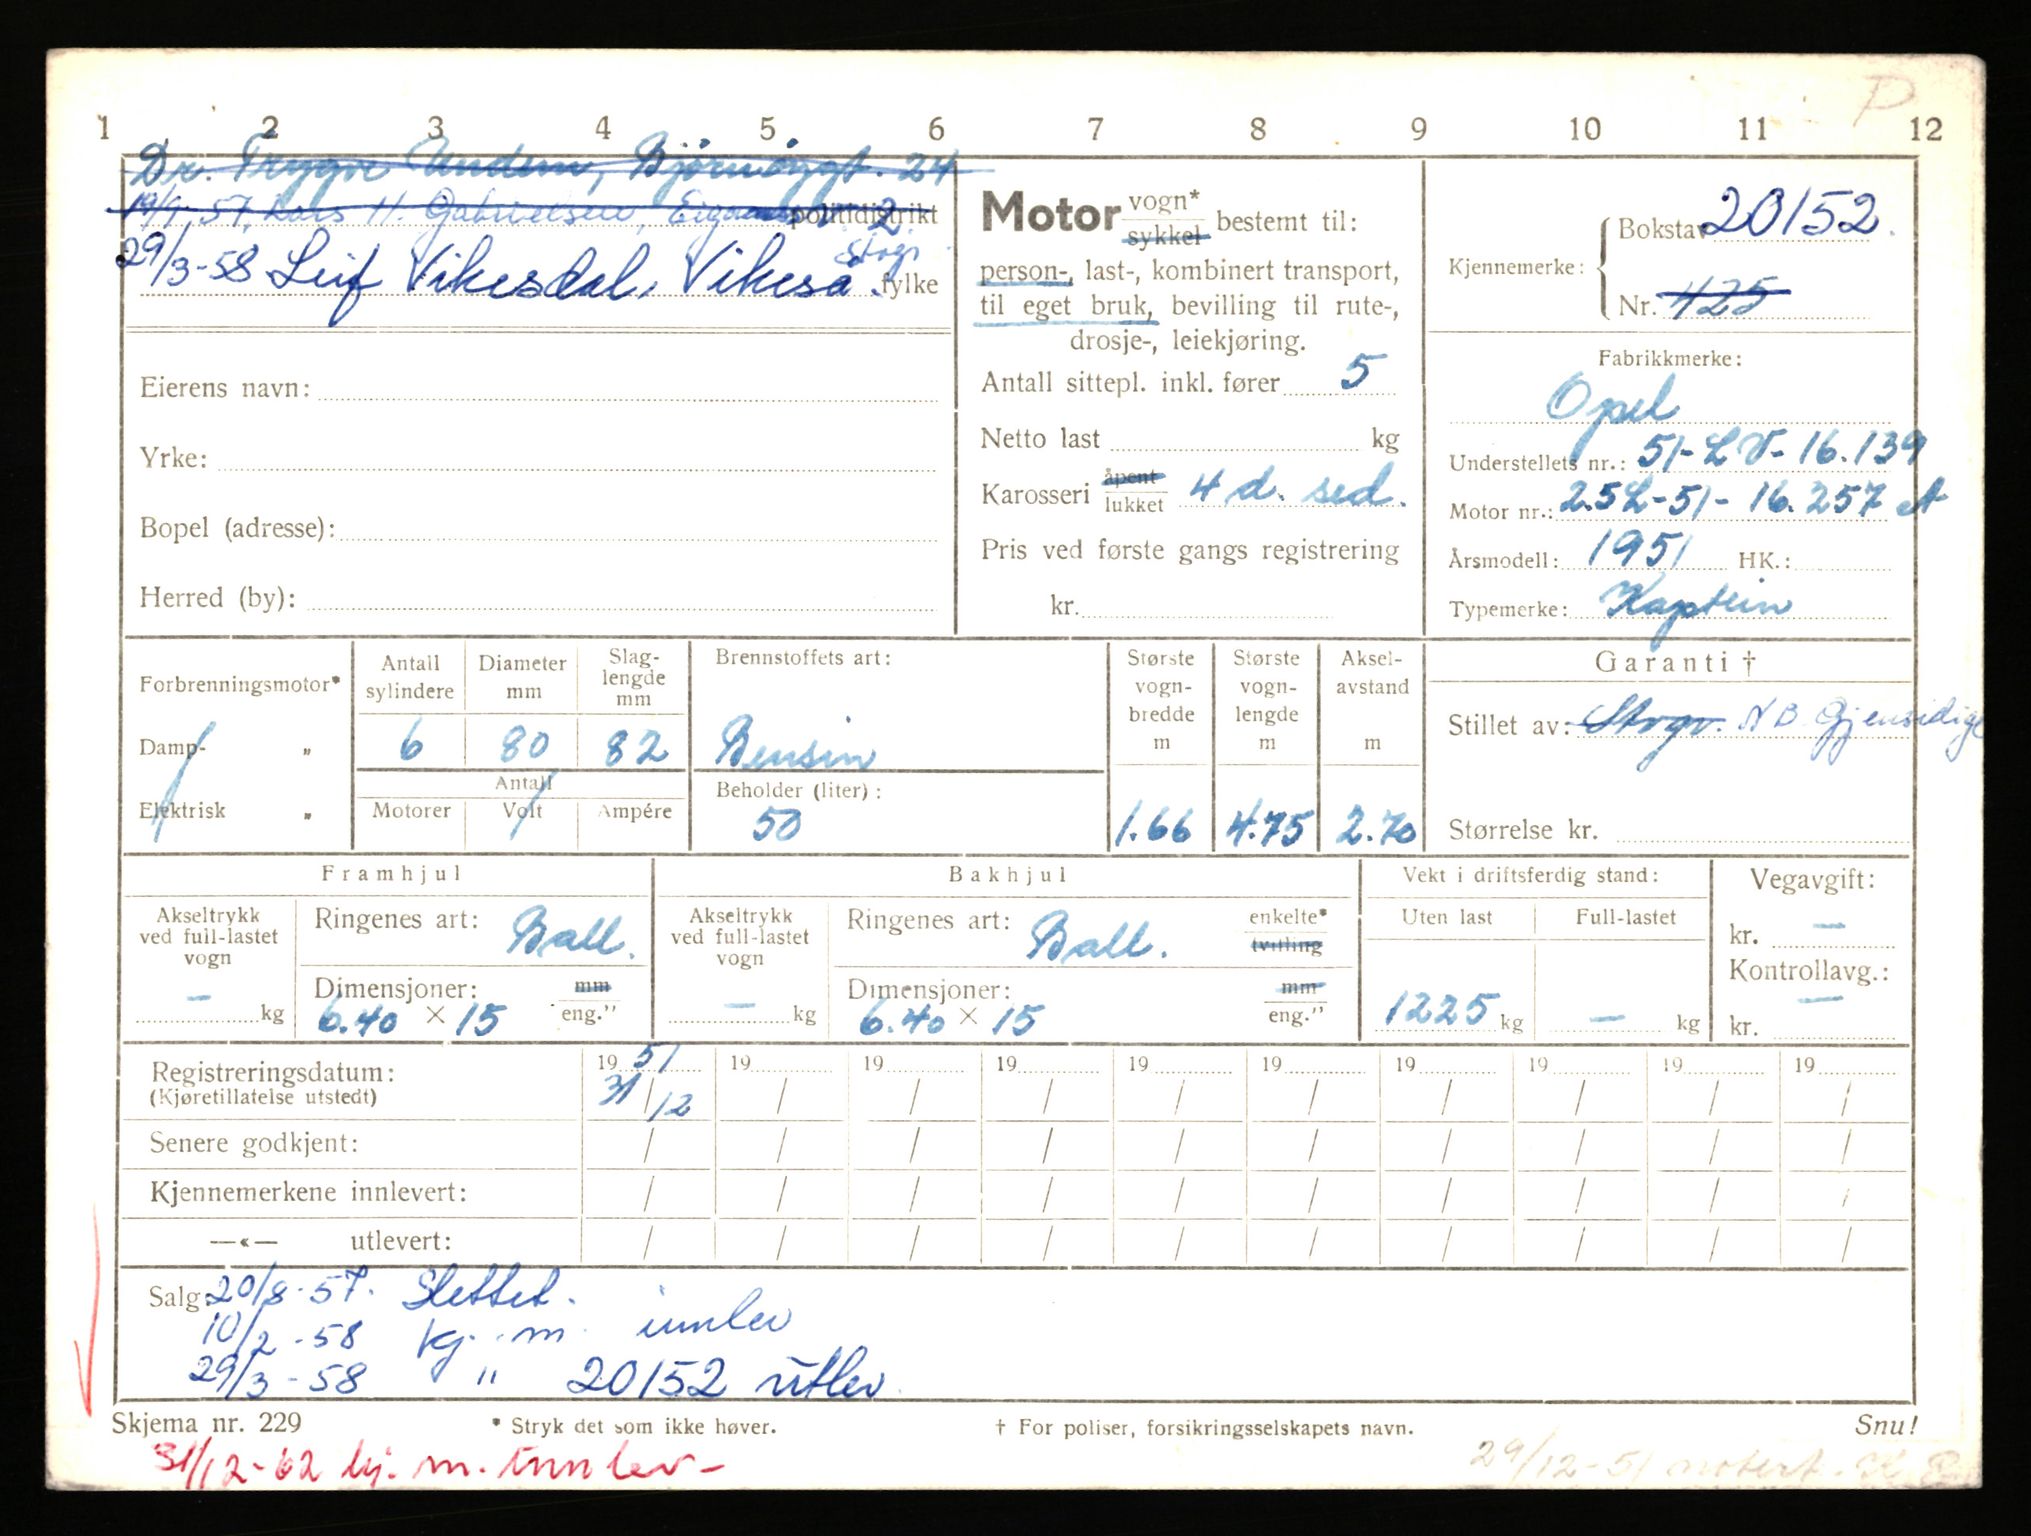 P
1 2 3 4 5 6 7 8 9 10 11 12
Dr. Trygve Undem, Bjørnøygt. 24
19/9.57. Lars H. Gabrielsen, 2 politidistrikt
Stvgr.
29/3-58 Leif Vikesdal, Vikeså. fylke
Eierens navn:
Yrke:
Bopel (adresse):
Herred (by):
Motor vogn* sykkel bestemt til:
person-, last-, kombinert transport,
til eget bruk, bevilling til rute-,
drosje-, leiekjøring.
Antall sittepl. inkl. fører 5
Netto last kg
Karosseri åpent lukket 4 d. sed.
Pris ved første gangs registrering
kr.
Kjennemerke: Bokstav 20152.
Nr. 425
Fabrikkmerke:
Opel
Understellets nr.: 51-LV-16.139
Motor nr.: 2.5L-51-16.257 et
Årsmodell: 1951 HK.:
Typemerke: Kaptein
Forbrenningsmotor*
Damp- "
Elektrisk "
Antall sylindere Diameter mm Slag-lengde mm
6 80 82
Antall
Motorer Volt Ampére
Brennstoffets art:
Bensin
Beholder (liter):
50
Største vogn-bredde m Største vogn-lengde m Aksel-avstand m
1.66 4.75 2.70
Garanti †
Stillet av: Stvgr. NB Gjensidige
Størrelse kr.
Framhjul
Akseltrykk ved full-lastet vogn
— kg
Ringenes art: Ball.
Dimensjoner: mm
6.40 × 15 eng."
Bakhjul
Akseltrykk ved full-lastet vogn
— kg
Ringenes art: Ball. enkelte* tvilling
Dimensjoner: mm
6.40 × 15 eng."
Vekt i driftsferdig stand:
Uten last Full-lastet
1225 kg — kg
Vegavgift:
kr. —
Kontrollavg.:
kr. —
Registreringsdatum: 19 51 19 19 19 19 19 19 19 19 19
(Kjøretillatelse utstedt) 31/12 / / / / / / / / /
Senere godkjent: / / / / / / / / / /
Kjennemerkene innlevert: / / / / / / / / / /
—«— utlevert: / / / / / / / / / /
Salg: 20/8-57. Slettet.
10/2-58 kj. m. innlev
29/3-58 " 20152 utlev.
Skjema nr. 229 * Stryk det som ikke høver. † For poliser, forsikringsselskapets navn. Snu!
31/12-62 kj. m. innlev-
29/12-51 notert. K